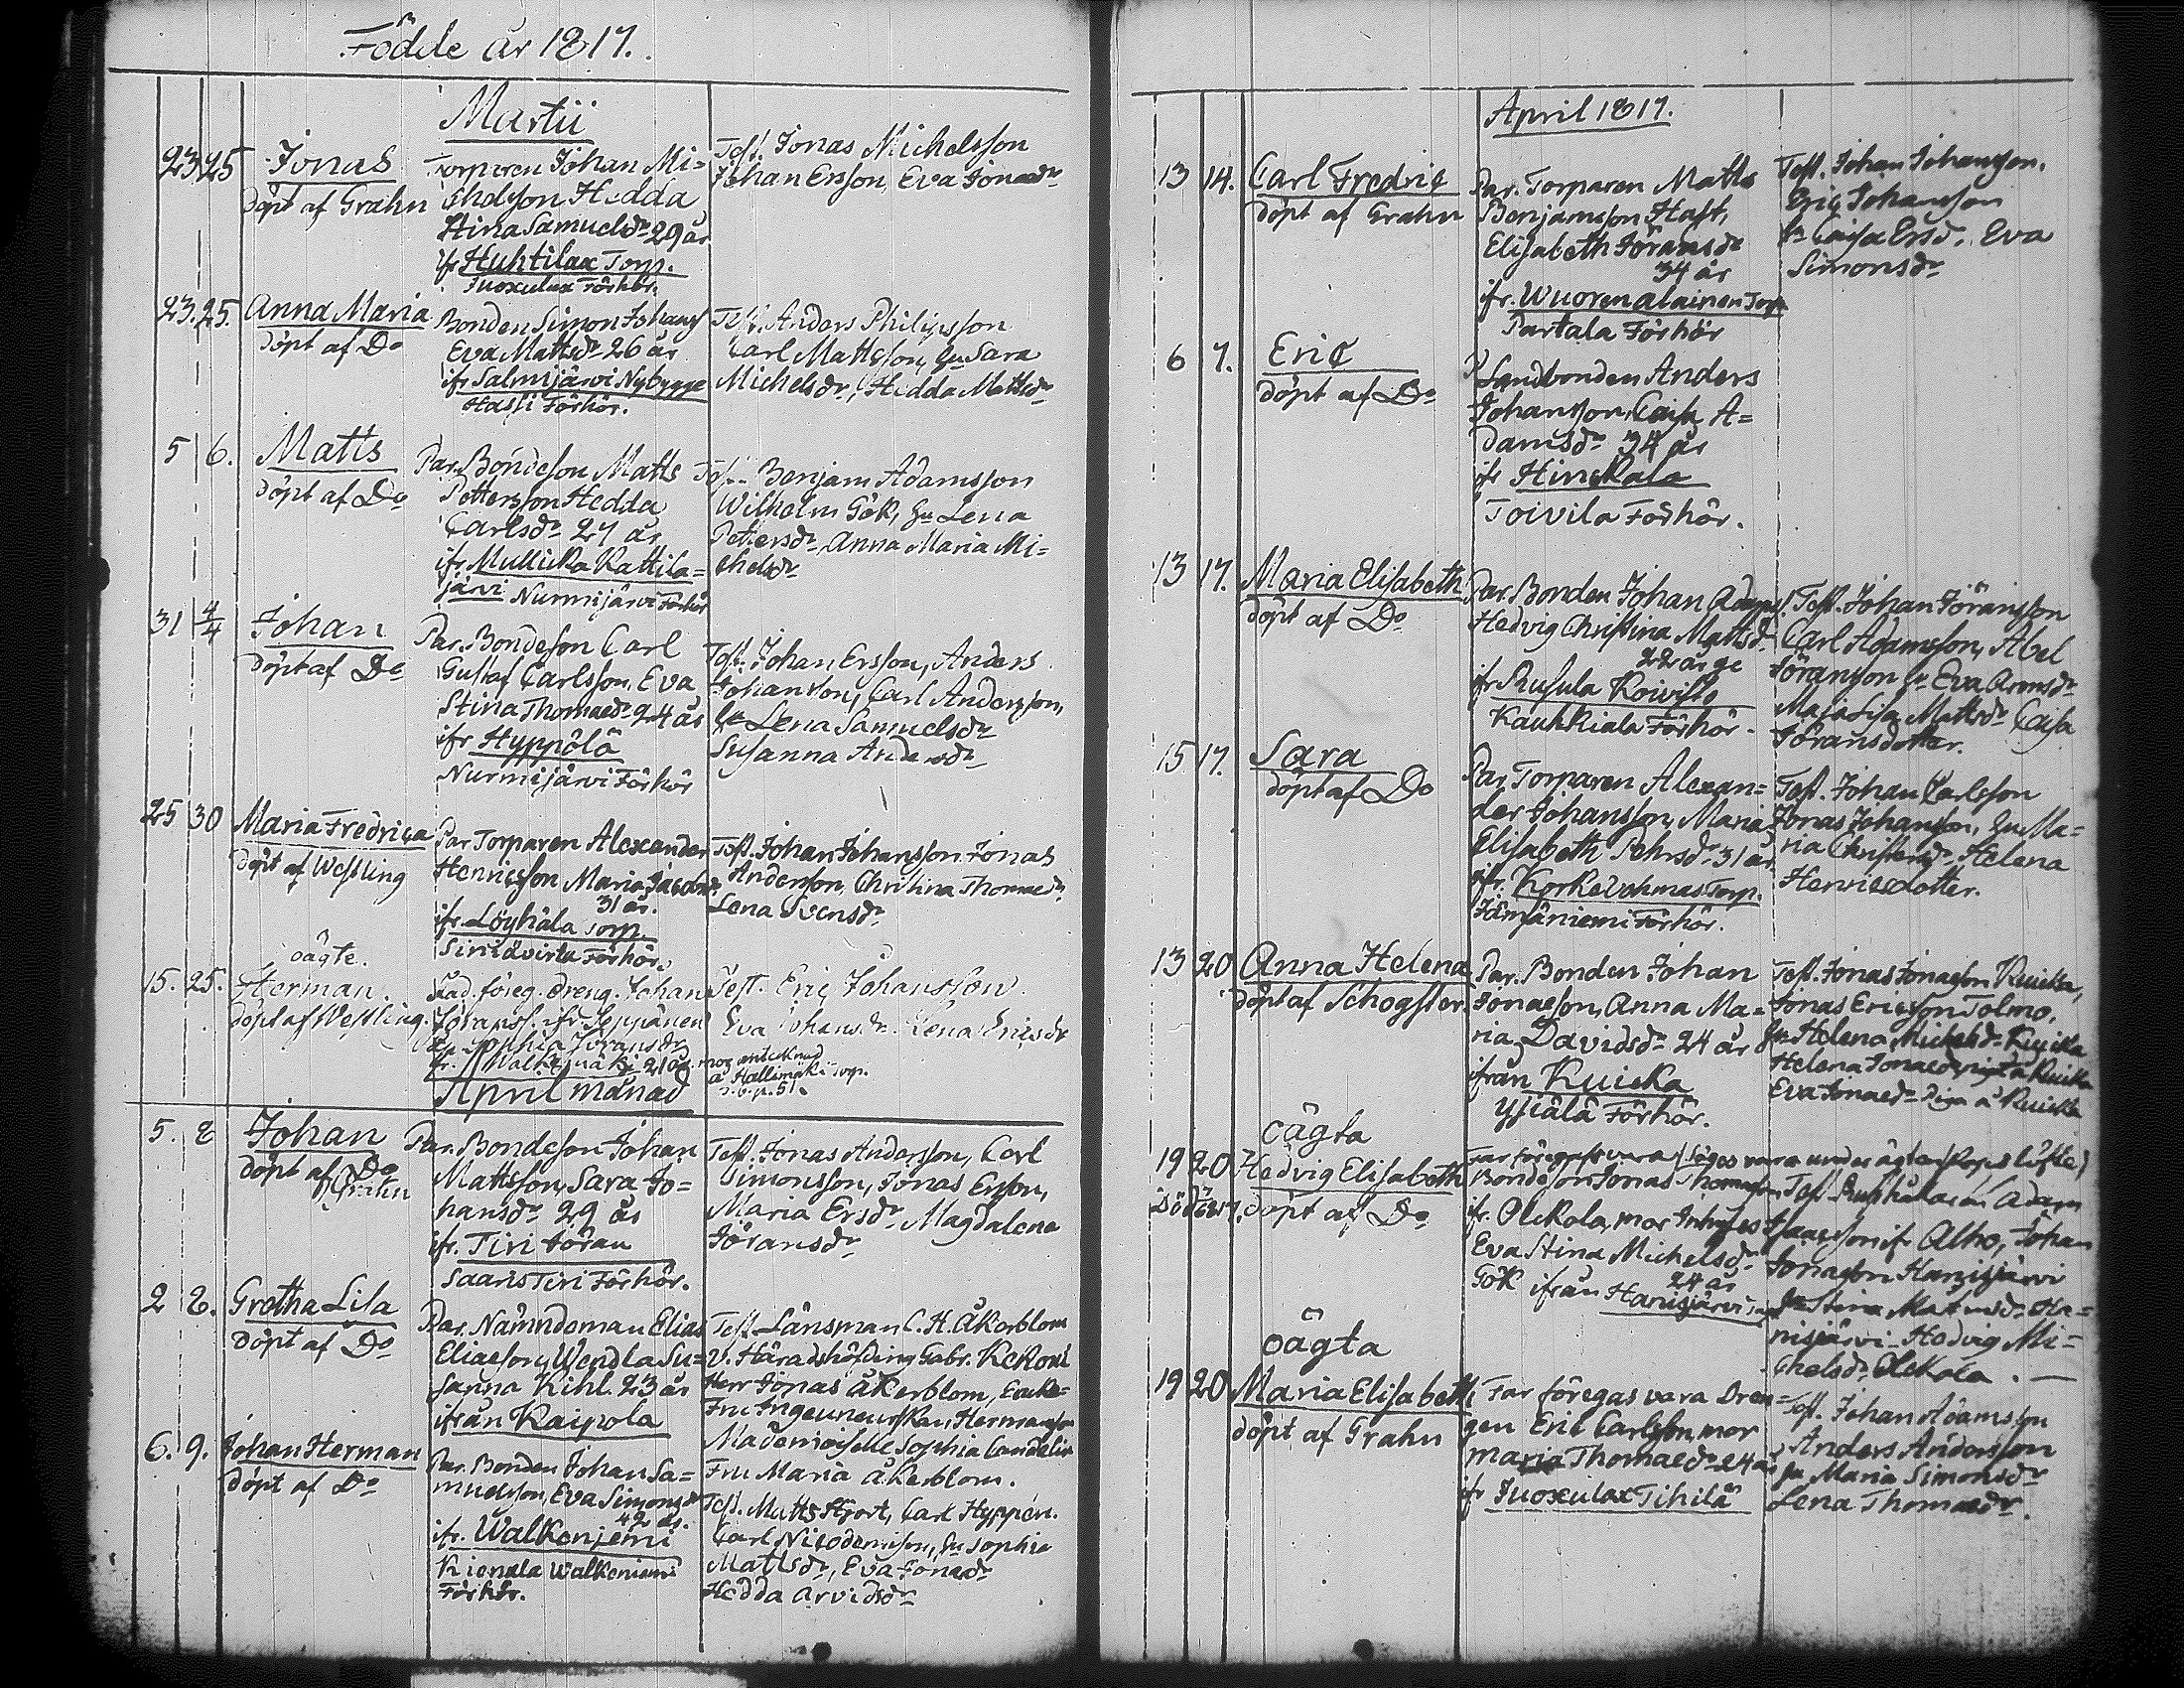 Födde år 1817.
Martii
23. 25 Jonas
döpt af Grahn
Torparen Johan Mi=
chelsson Hedda
Stina Samuelsdr 29 år
ifr Huhtilax Torp.
Juoxulax Förhör.
Test. Jonas Michelsson
Johan Ersson, Eva Jonaedr
23. 25. Anna Maria
döpt af Do
Bonden Simon Johanss
Eva Mattsdr 26 år
ifr Salmijärvi Nybygge
Hassi Förhör.
Test. Anders Philipsson
Carl Mattsson, Hu Sara
Michelsdr, Hedda Mattsdr
5 6. Matts
döpt af Do
Par. Bondeson Matts
Pettersson Hedda
Carlsdr 27 år
ifr Mullicka Kattila=
järvi Nurmijärvi Förhör
Benjam Adamsson
Wilhelm Gök, Hu Lena
Pettersdr, Anna Maria Mi=
chelsdr
31 4/4 Johan
döpt af Do
Par. Bondeson Carl
Gustaf Carlsson, Eva
Stina Thomaedr 24 år
ifr Hyppölä
Nurmijärvi Förhör
Test. Johan Ersson, Anders
Johansson, Carl Andersson,
Hu Lena Samuelsdr
Susanna Andersdr
25 30 Maria Fredrica
döpt af Westling
Par Torparen Alexander
Henricsson Maria Jacobsdr
31 år.
ifr Löyhälä Torp.
Förhör.
Test. Johan Johansson Jonas
Andersson, Christina Thomaedr
Lena Svensdr
oägte.
15. 25. Herman.
döpt af Westling.
föreg. dreng. Johan
ifr Seppänen
Sophia Göransdr
21 år
Test. Eric Johansson
Eva Johansdr Lena Ericsdr
mor antecknad
å Hallimäki Torp.
p. 51.
April månad
5. 8 Johan
döpt af Do
Grahn
Par. Bondeson Johan
Mattsson, Sara Jo=
hansdr 29 år
ifr. Tiri Jöran
Saaris Tiri Förhör.
Test. Jonas Andersson, Carl
Simonsson, Jonas Ersson,
Maria Ersdr, Magdalena
Jöransdr
2 8. Gretha Lisa
döpt af Do
Par. Nämndeman Elias
Eliaeson, Wendla Su=
sanna Kihl. 23 år
ifrån Kaipola
Test. Länsman C. H. Åkerblom
V. Häradshöfding Gabr. Kekoni
Herr Jonas Åkerblom,
Fru Ingeuneurskan, Hermansson
Mademoiselle Sophia Candelin
Fru Maria Åkerblom.
6. 9. Johan Herman
döpt af Do
Par. Bonden Johan Sa=
muelsson, Eva Simonsdr
42 år.
ifr. Walkenjemi
Kienala Walkeniemi
Förhör.
Test. Matts Hjort, Carl Hyppén.
Carl Nicodemsson, Hu Sophia
Mattsdr, Eva Jonaedr
Hedda Arvidsdr
April 1817.
13 14. Carl Fredric
döpt af Grahn
Par. Torparen Matts
Benjamsson Hast,
Elisabeth Jöransdr
34 år
ifr. Wuorenalainen Torp
Partala Förhör
Test. Johan Johansson.
Eric Johansson
Hu Caisa Ersdr. Eva
Simonsdr
6 7. Eric
döpt af Do
Landbonden Anders
Johansson, Caisa A=
damsdr 34 år
ifr Hinckala
Toivila Förhör.
13 17. Maria Elisabeth
döpt af Do
Par. Bonden Johan Adamss
Hedvig Christina Mattsdr
22 år ge
ifr Rusula Koivisto
Kauhkiala Förhör.
Test. Johan Jöransson
Carl Adamsson, Abel
Jöransson Hu Eva Aronsdr
Maja Lisa Mattsdr Caisa
Jöransdotter.
15. 17. Sara
döpt af Do
Par Torparen Alexan=
der Johansson, Maria
Elisabeth Pehrsdr 31 år
ifr. Korkevehmas Torp.
Jämsäniemi Förhör.
Test. Johan Carlsson
Jonas Johansson, Hu Ma=
ria Christersdr Helena
Henricsdotter.
13 20 Anna Helena
döpt af Schogster.
Par. Bonden Johan
Jonaesson, Anna Ma=
ria Davidsdr 24 år
ifrån Kuicka
Ysiälä Förhör.
Test. Jonas Jonaeson Kuicka,
Jonas Ericsson Tolmo,
Hu Helena Michelsdr Kuicka
Helena Jonaedr Piga å Kuicka
Eva Jonaedr Piga å Kuicka
oägta
19 20. Hedvig Elisabeth
döpt af Do
Far föregifs vara (säges vara under ägtenskaps löfte)
Bondeson Jonas Thomasson
ifr. Olckola, mor Inhyses
Eva Stina Michelsdr
Gök ifrån 24 år
Hanisjärvi
Test. Adam
Isaacsson ifr Alho, Johan
Jonaeson Hanisjärvi
Hu Stina Ha=
nisjärvi Hedvig Mi=
chelsdr, Olckola.
oägta
19 20 Maria Elisabeth
döpt af Grahn
Far föregas vara Dren=
gen Eric Carlsson, mor
Maria Thomaedr 24 år
ifr Juoxulax Tihilä
Test. Johan Adamsson
Anders Andersson
Hu Maria Simonsdr
Lena Thomaedr.